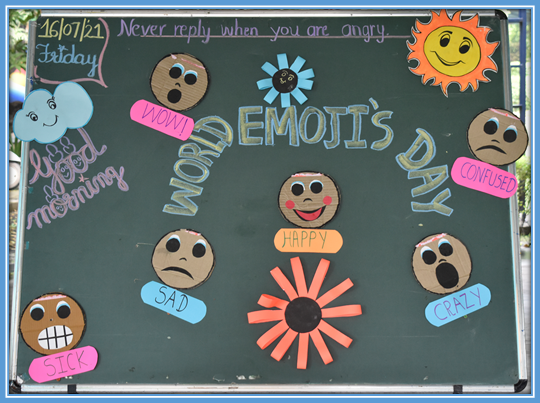 16/07/21
Friday
Never reply when you are angry.
Good
morning
WORLD EMOJI'S DAY
WOW!
CONFUSED
HAPPY
SAD
CRAZY
SICK